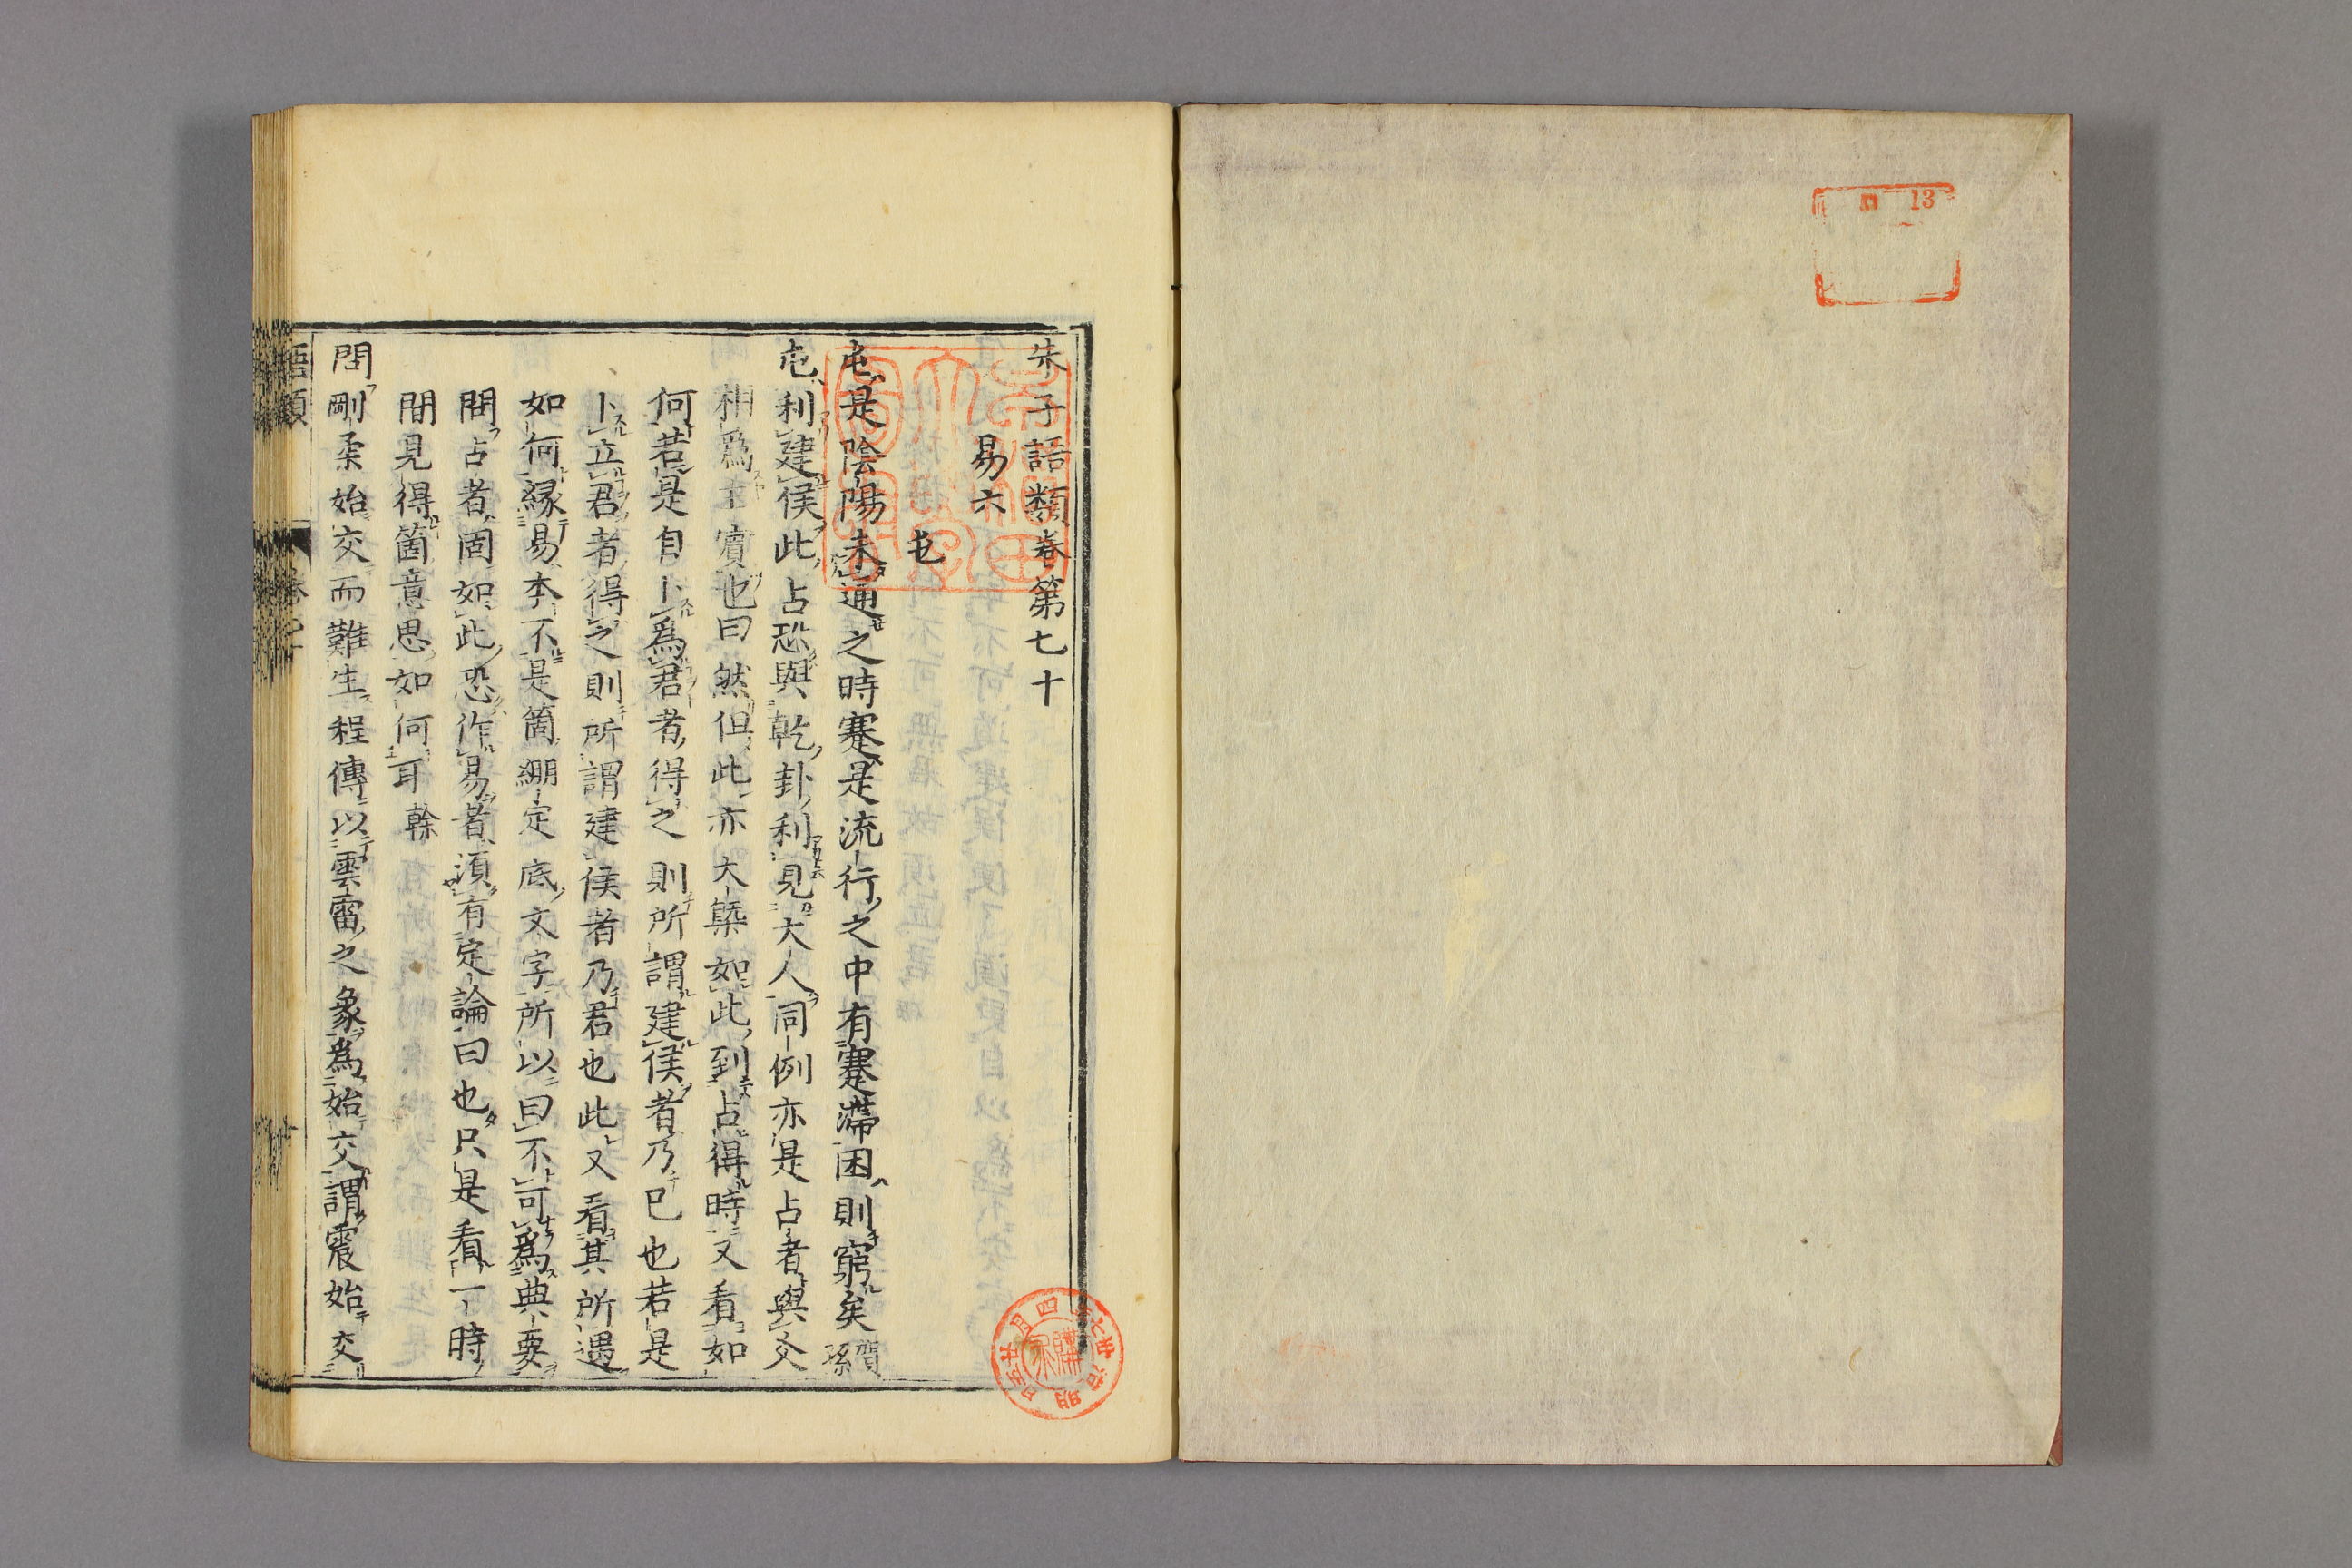 13
朱子語類卷第七十
易六
屯
屯是陰陽未通之時蹇是流行之中有蹇滯困則窮矣賀孫
屯利建侯此占恐與乾卦利見大人同例亦是占者與爻
相爲主賓也曰然但此亦大槩如此到占得時又看如
何若是自卜爲君者得之則所謂建侯者乃己也若是
卜立君者得之則所謂建侯者乃君也此又看其所遇
如何緣易本不是箇綳定底文字所以曰不可爲典要
問占者固如此恐作易者須有定論曰也只是看一時
間見得箇意思如何耳榦
問剛柔始交而難生程傳以雲雷之象爲始交謂震始交
語類
卷七十